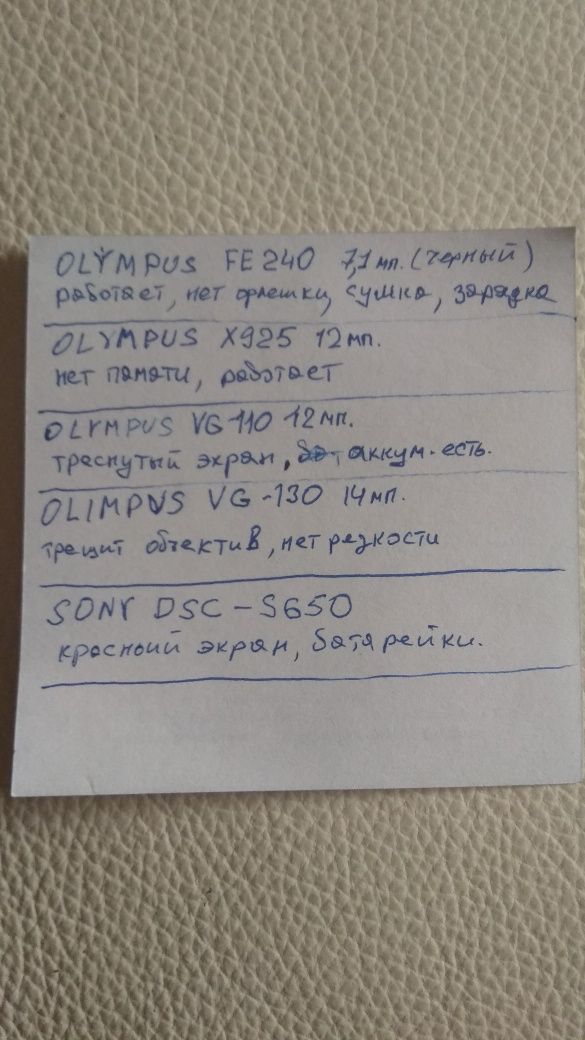 OLYMPUS FE240 7,1 мп. (черный)
работает, нет флешки, сумка, зарядка
OLYMPUS X925 12мп.
нет памяти, работает
OLYMPUS VG-110 12мп.
треснутый экран, аккум. есть.
OLIMPUS VG-130 14мп.
трещит обьектив, нет резкости
SONY DSC-S650
красный экран, батарейки.